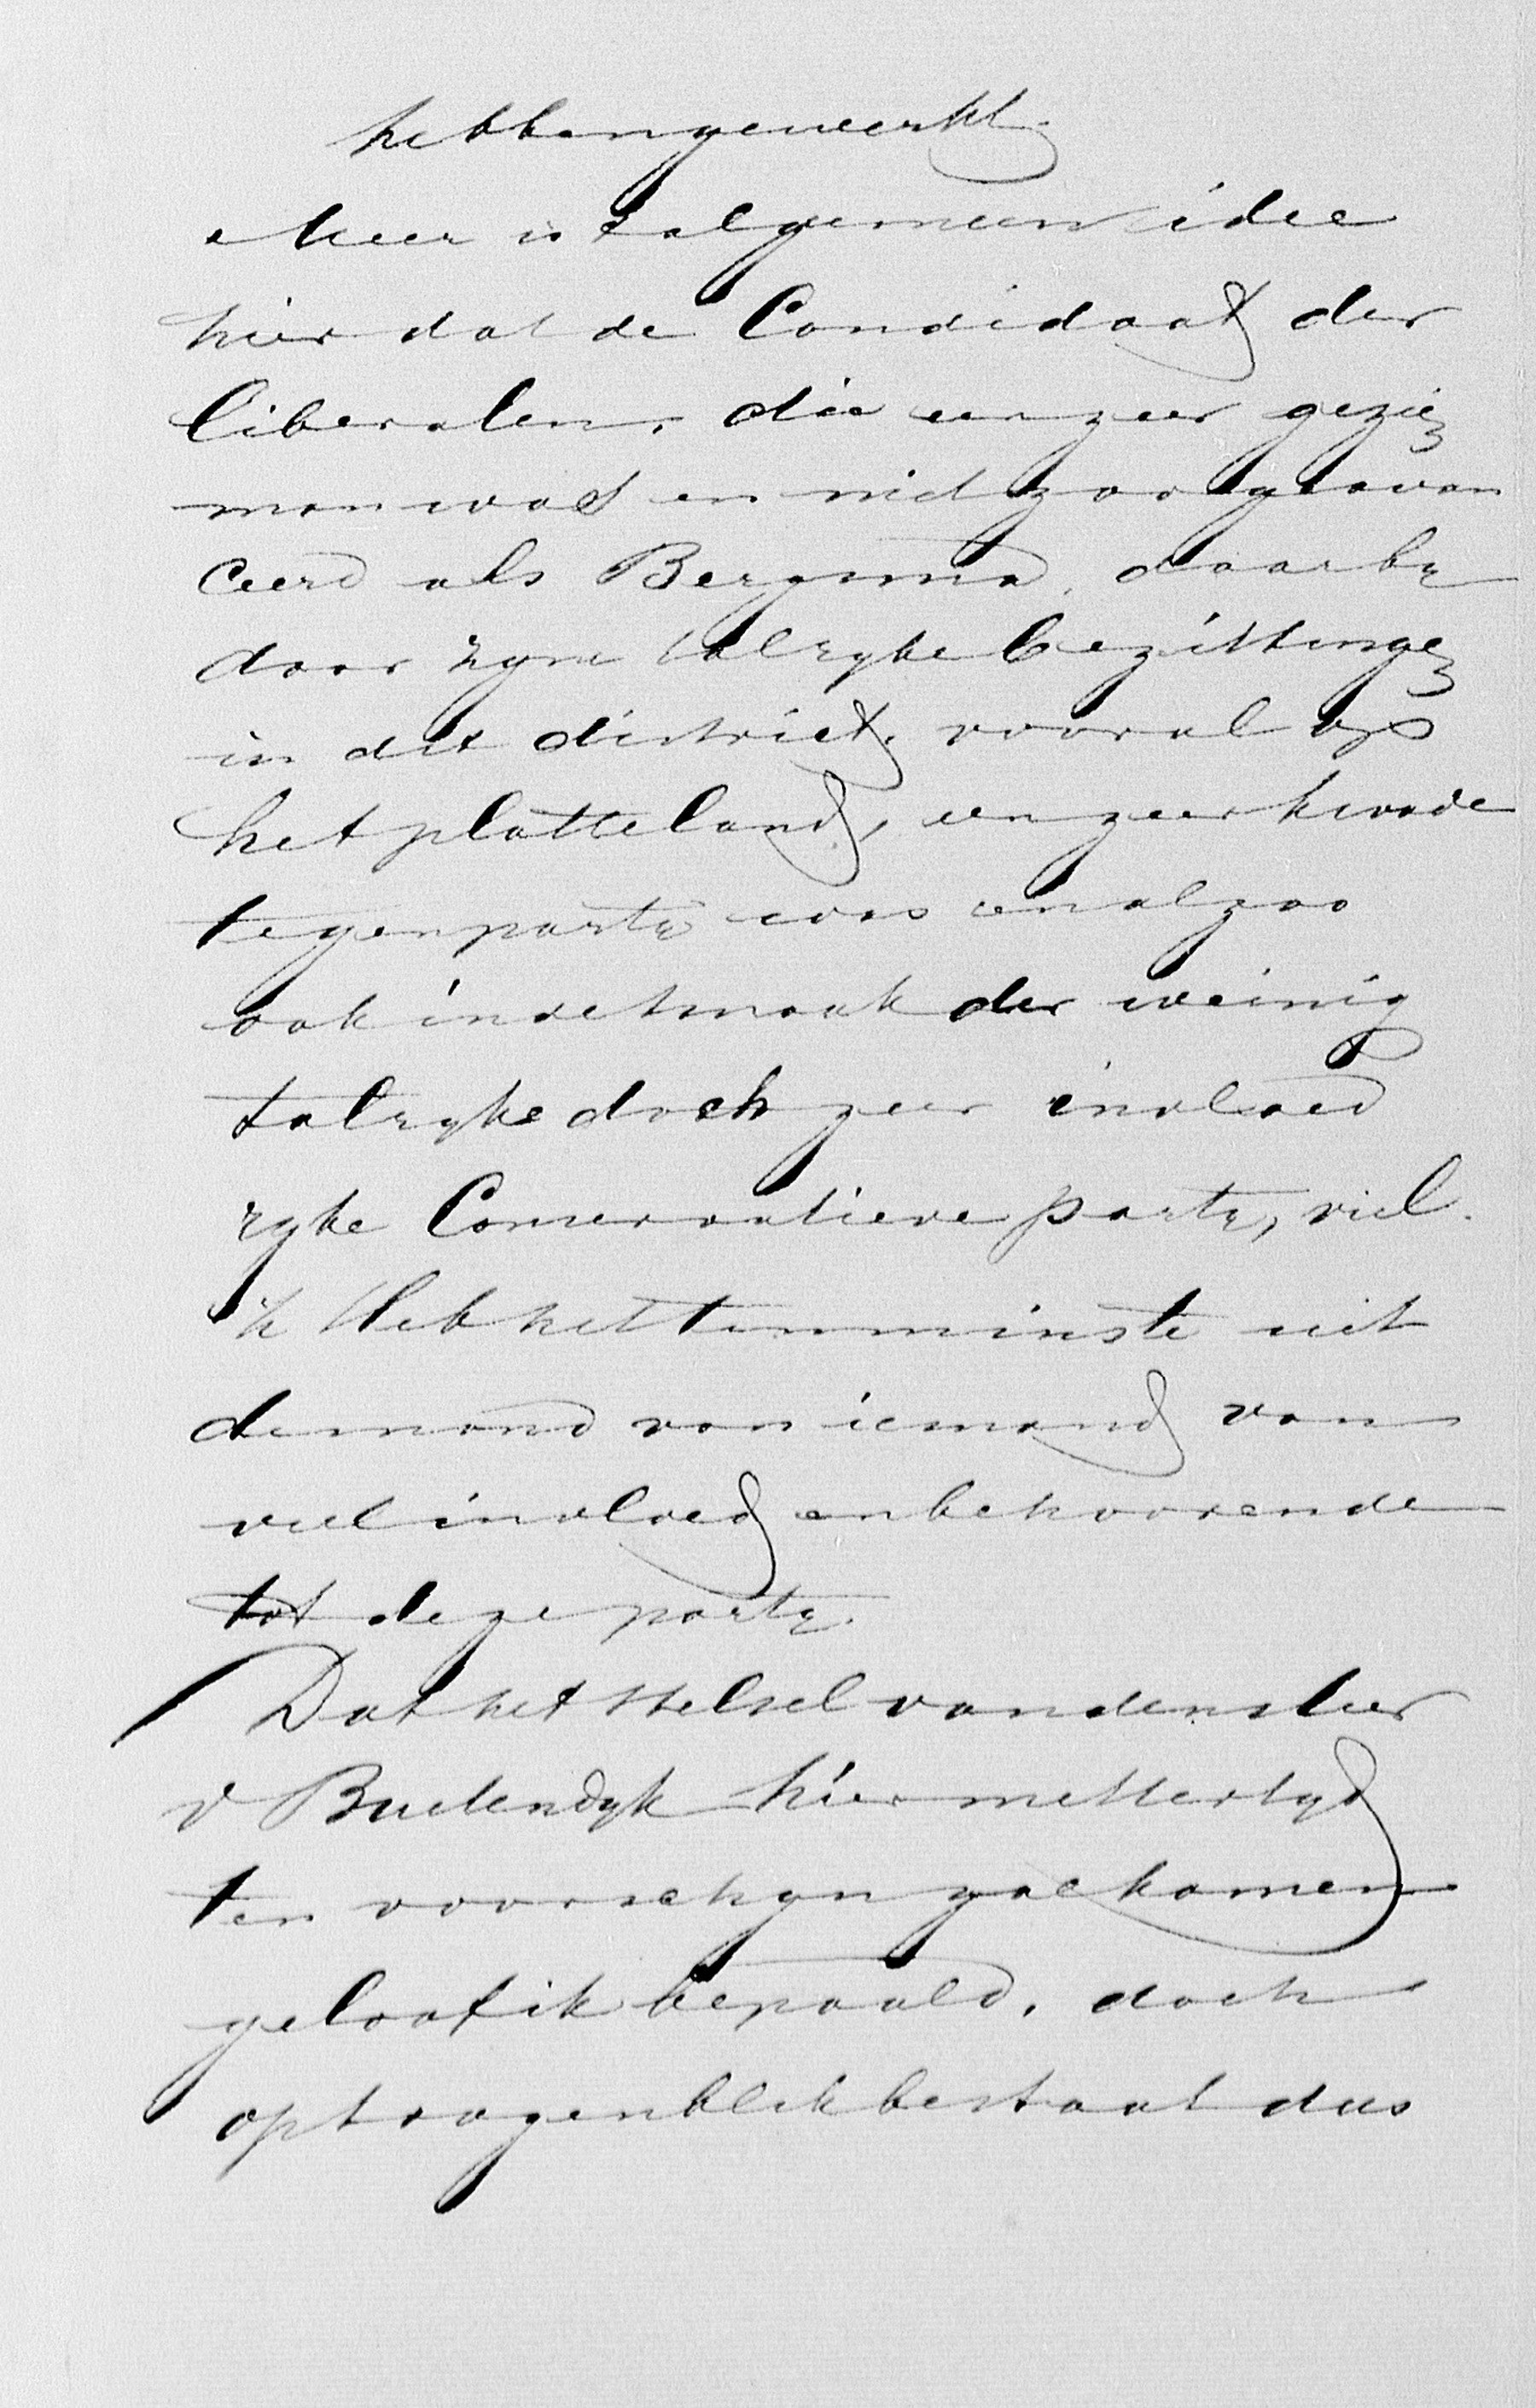 hebben gewerkt.
Meer is t algemeen idee
hier dat de Candidaat der
liberalen, die een zeer gezien
man was en niet zoo geavan
ceerd als Bergsma, daarby
door zyne talryke bezittingen
in dit district, vooral op
het platteland, een zeer kwade
tegenparty was en alzoo
ook in de smaak der weinig
talryke doch zeer invloed
ryke Conservatieve party, viel.
'k Heb het tenminste uit
de mond van iemand van
veel invloed en behoorende
tot deze party.
Dat het stelsel van den Heer
v Buelendyk hier mettertyd
ten voorschyn zal komen
geloof ik bepaald, doch
op t oogenblik bestaat dus